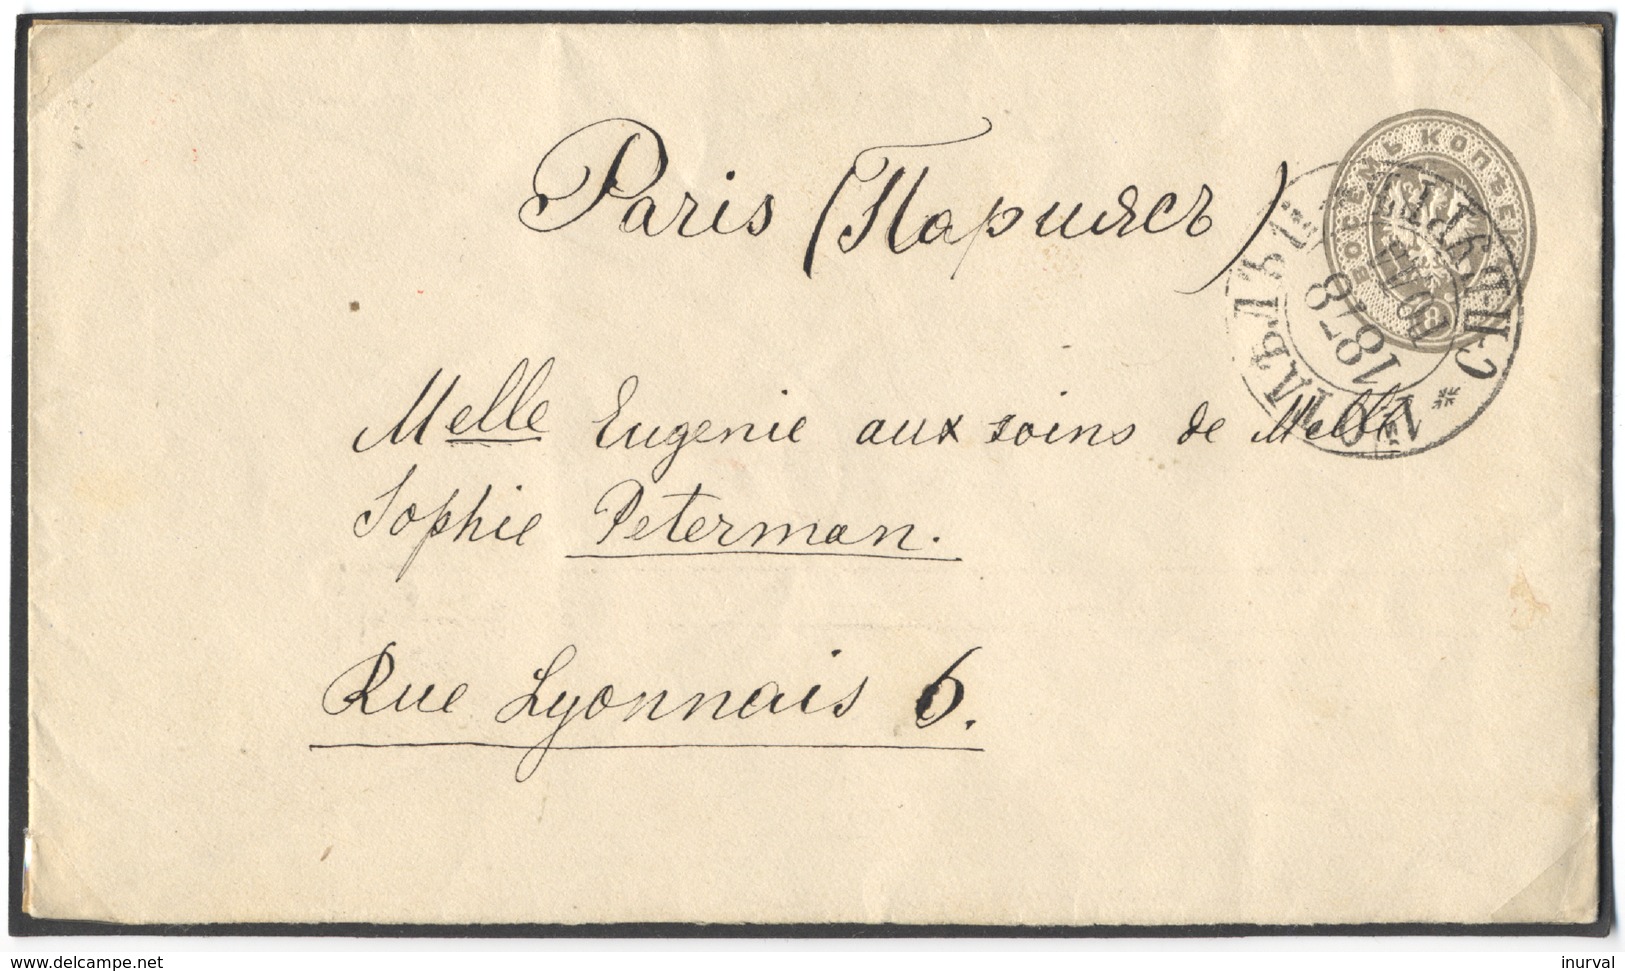 Paris (Парижсъ)
ВОСЕМЬ КОПѢЕКЪ
8
С.П.Б.
1878
Melle Eugenie aux soins de Melle
Sophie Peterman.
Rue Lyonnais 6.
www.delcampe.net
inurval